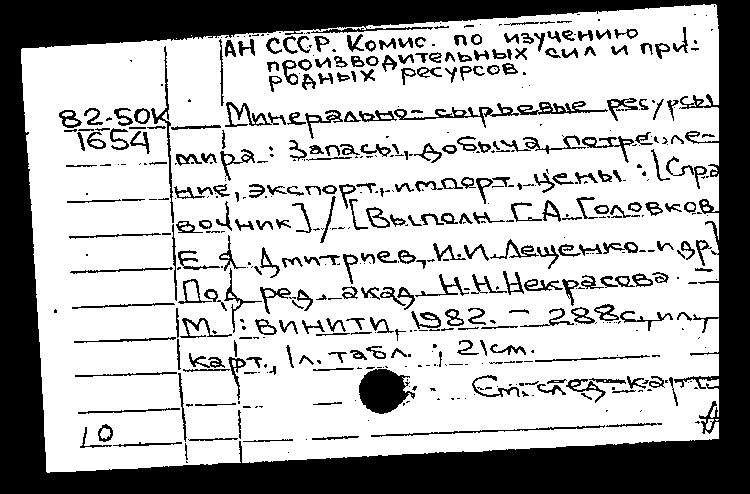 АН СССР. Комис. по изучению
производительных сил и при-
родных ресурсов.
82-50К
1654
Минерально-сырьевые ресурсы
мира: Запасы, добыча, потребле-
ние, экспорт, импорт, цены: [Спра
вочник] / [Выполн Г.А. Головков
Е. Я. Дмитриев, И.И. Лещенко и др.]
Под ред. акад. Н.Н. Некрасова. –
М. : ВИНИТИ, 1982. – 288с., ил.,
карт., 1л. табл. ; 21см.
См. след. карт.
10